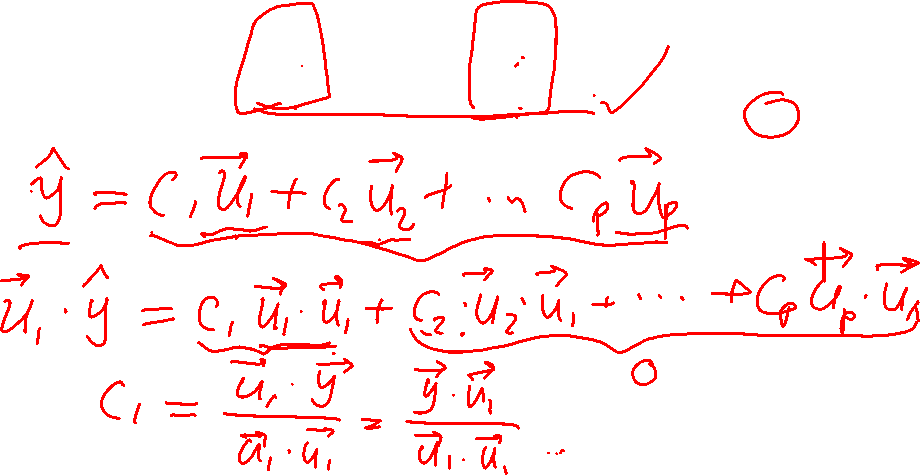 ŷ = c₁u⃗₁ + c₂u⃗₂ + ... cₚu⃗ₚ
u⃗₁ · ŷ = c₁u⃗₁ · u⃗₁ + c₂ · u⃗₂ · u⃗₁ + ... + cₚu⃗ₚ · u⃗₁
0
c₁ = (u⃗₁ · y⃗)/(u⃗₁ · u⃗₁) = (y⃗ · u⃗₁)/(u⃗₁ · u⃗₁) ...